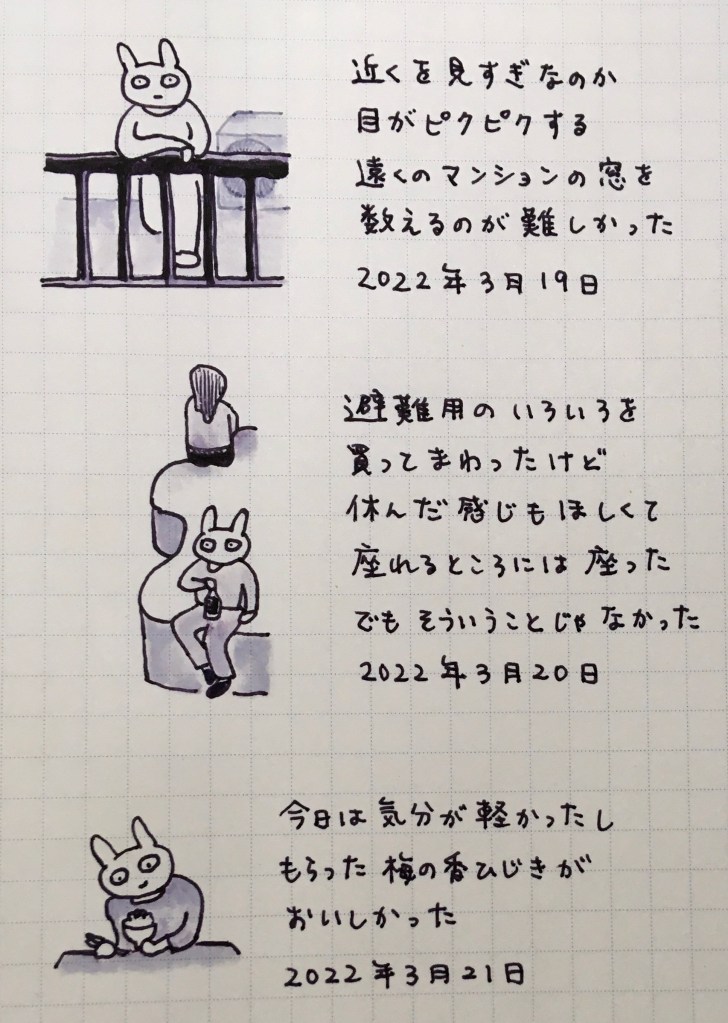 近くを見すぎなのか
目がピクピクする
遠くのマンションの窓を
数えるのが難しかった
2022年3月19日
避難用のいろいろを
買ってまわったけど
休んだ感じもほしくて
座れるところには座った
でもそういうことじゃなかった
2022年3月20日
今日は気分が軽かったし
もらった梅の香ひじきが
おいしかった
2022年3月21日